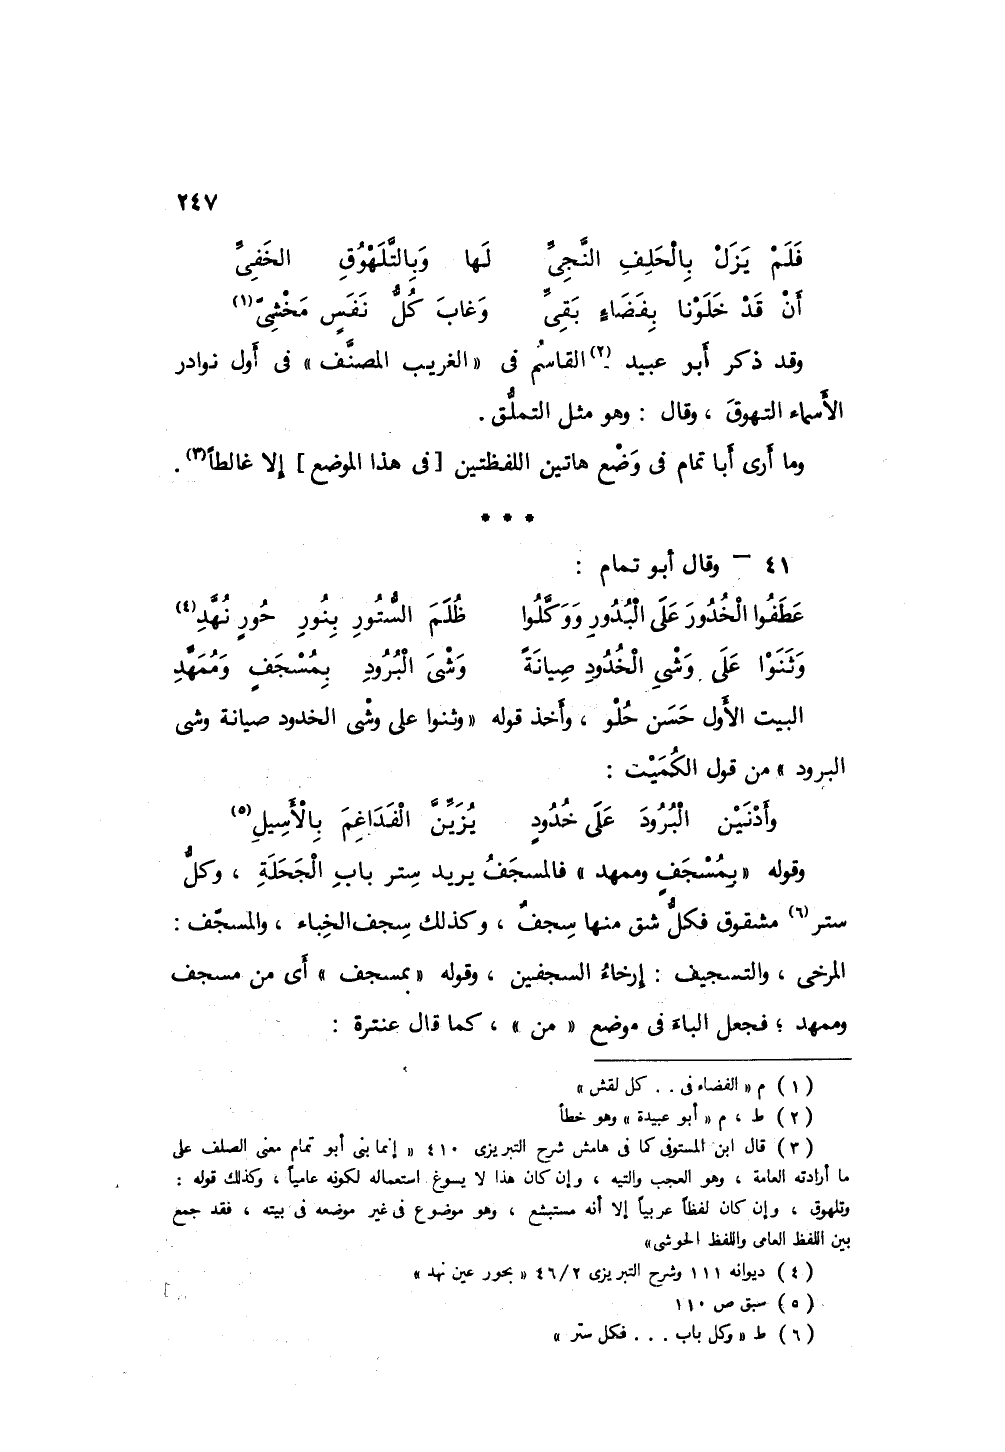 ٢٤٧
فَلَمْ يَزَلْ بِالْحَلِفِ النَّجِىِّ لَها وَبِالتَّلَهْوُقِ الخَفِىِّ
أَنْ قَدْ خَلَوْنا بِفَضَاءٍ بَقِىِّ وَغابَ كُلُّ نَفَسٍ مَخْشِىِّ(١)
وقد ذكر أَبو عبيد (٢) القاسمُ فى « الغريب المصنَّف » فى أَول نوادر
الأَسماء التهوقَ ، وقال : وهو مثل التملُّق .
وما أَرى أَبا تمام فى وَضْع هاتين اللفظتين [ فى هذا الموضع ] إلا غالطاً(٣) .
* * *
٤١ – وقال أبو تمام :
عَطَفُوا الْخُدُورَ عَلَى الْبُدُورِ وَوَكَّلُوا ظُلَمَ السُّتُورِ بِنُورِ حُورٍ نُهَّدِ(٤)
وَثَنَوْا عَلَى وَشْىِ الْخُدُودِ صِيانَةً وَشْىَ الْبُرُودِ بِمُسْجَفٍ وَمُمَهَّدِ
البيت الأَول حَسَن حُلْو ، وأَخذ قوله « وثنوا على وشْى الخدود صيانة وشى
البرود » من قول الكُمَيْت :
وأَدْنَيْن الْبُرُودَ عَلَى خُدُودٍ يُزَيِّنَّ الْفَدَاغِمَ بِالْأَسِيلِ(٥)
وقوله « بِمُسْجَفٍ وممهد » فالمسجَفُ يريد سِتر بابِ الْجَحَلَةِ ، وكلُّ
ستر(٦) مشقوق فكلُّ شق منها سِجفٌ ، وكذلك سِجف الخِباء ، والمسجّف :
المرخى ، والتسجيف : إرخاءُ السجفين ، وقوله « بمسجف » أَى من مسجف
وممهد ؛ فجعل الباءَ فى موضع « من » ، كما قال عنترة :
(١) م « الفضاء فى . . كل لقش »
(٢) ط ، م « أبو عبيدة » وهو خطأ
(٣) قال ابن المستوفى كما فى هامش شرح التبريزى ٤١٠ « إنما بنى أبو تمام معنى الصلف على
ما أرادته العامة ، وهو العجب والتيه ، وإن كان هذا لا يسوغ استعماله لكونه عامياً ، وكذلك قوله :
وتلهوق ، وإن كان لفظاً عربياً إلا أنه مستبشع ، وهو موضوع فى غير موضعه فى بيته ، فقد جمع
بين اللفظ العامى واللفظ الحوشى»
(٤) ديوانه ١١١ وشرح التبريزى ٤٦/٢ « بحور عين نهد »
(٥) سبق ص ١١٠
(٦) ط « وكل باب . . . فكل ستّر »